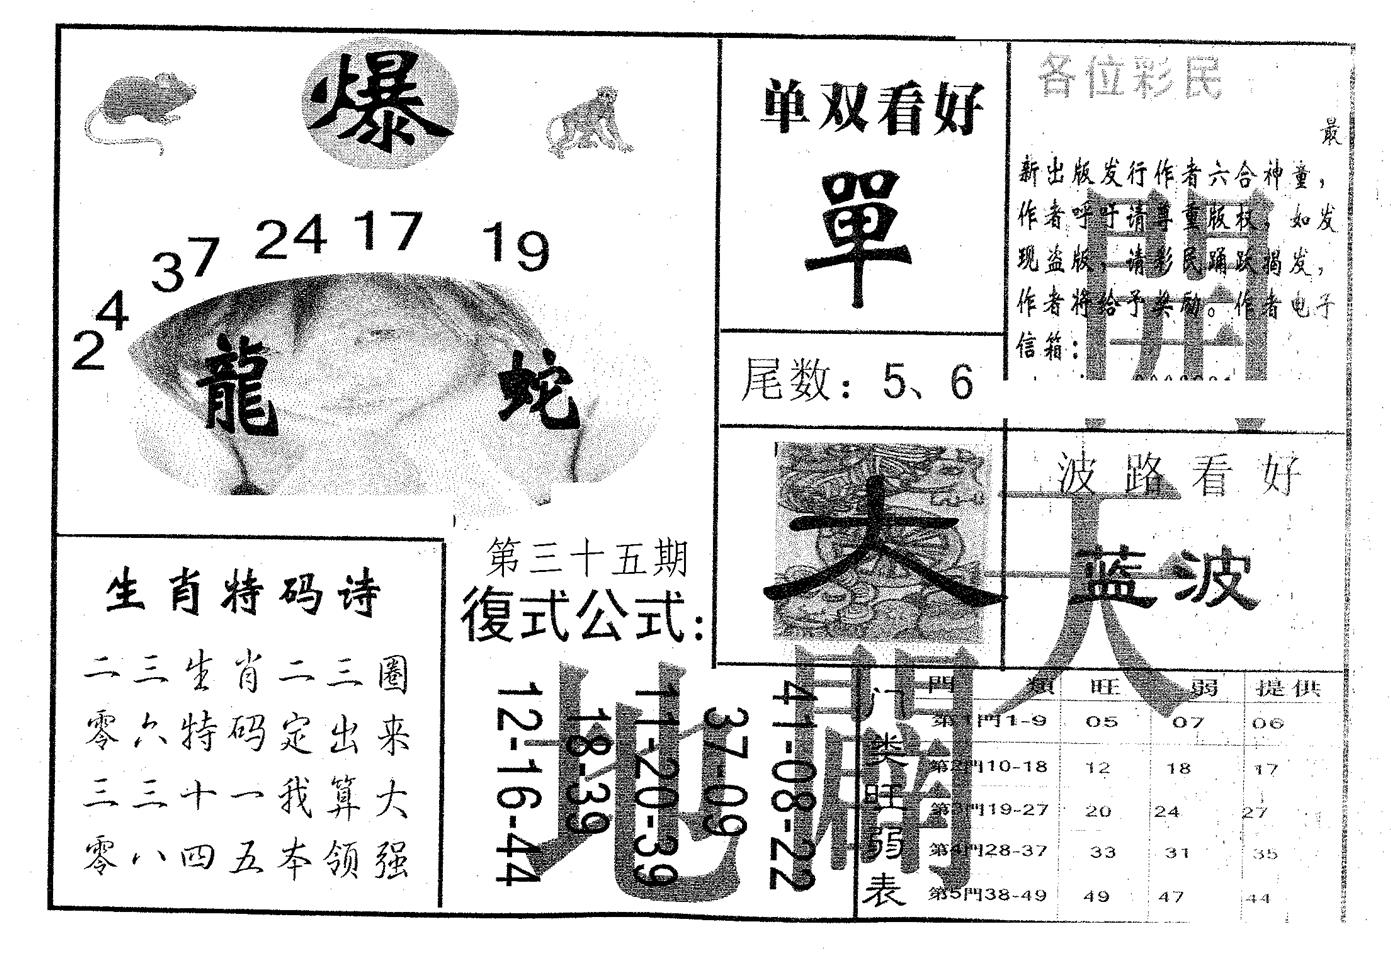 爆
24
37
24
17
19
龍
蛇
生肖特码诗
二三生肖二三圈
零六特码定出来
三三十一我算大
零八四五本领强
第三十五期
復式公式:
12-16-44
18-39
11-20-39
37-09
41-08-22
单双看好
單
尾数: 5、6
大
各位彩民
最
新出版发行作者六合神童,
作者呼吁请尊重版权, 如发
现盗版, 请彩民踊跃揭发,
作者将给予奖励。作者电子
信箱:
波路看好
蓝波
開
天
地
门类旺弱表
門類 旺 弱 提供
第1門1-9 05 07 06
第2門10-18 12 18 17
第3門19-27 20 24 27
第4門28-37 33 31 35
第5門38-49 49 47 44